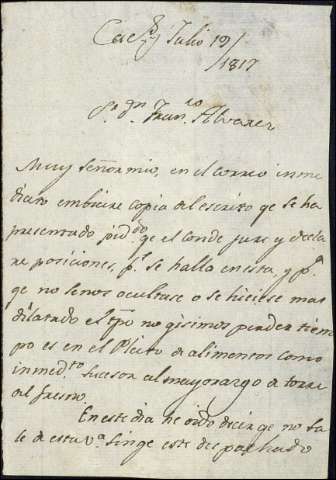 Cac.s y Julio 19/
/1817
S.r d.n Fran.co Alvarez
Muy Señor mio, en el correo inme
diato embiare copia del escrito qe se ha
presentado pid.do qe el conde jure y decla
re posiciones, p.r se halla en esta, y p.a
qe no senos ocultase o se hiciese mas
dilatado el tpo no qisimos perder tiem
po es en el Pleito de alimentos como
inmed.to sucesor al mayorazgo de torre
al fresno.
En este dia he oido decir qe no sa
le de esta v.a sin qe este despachado